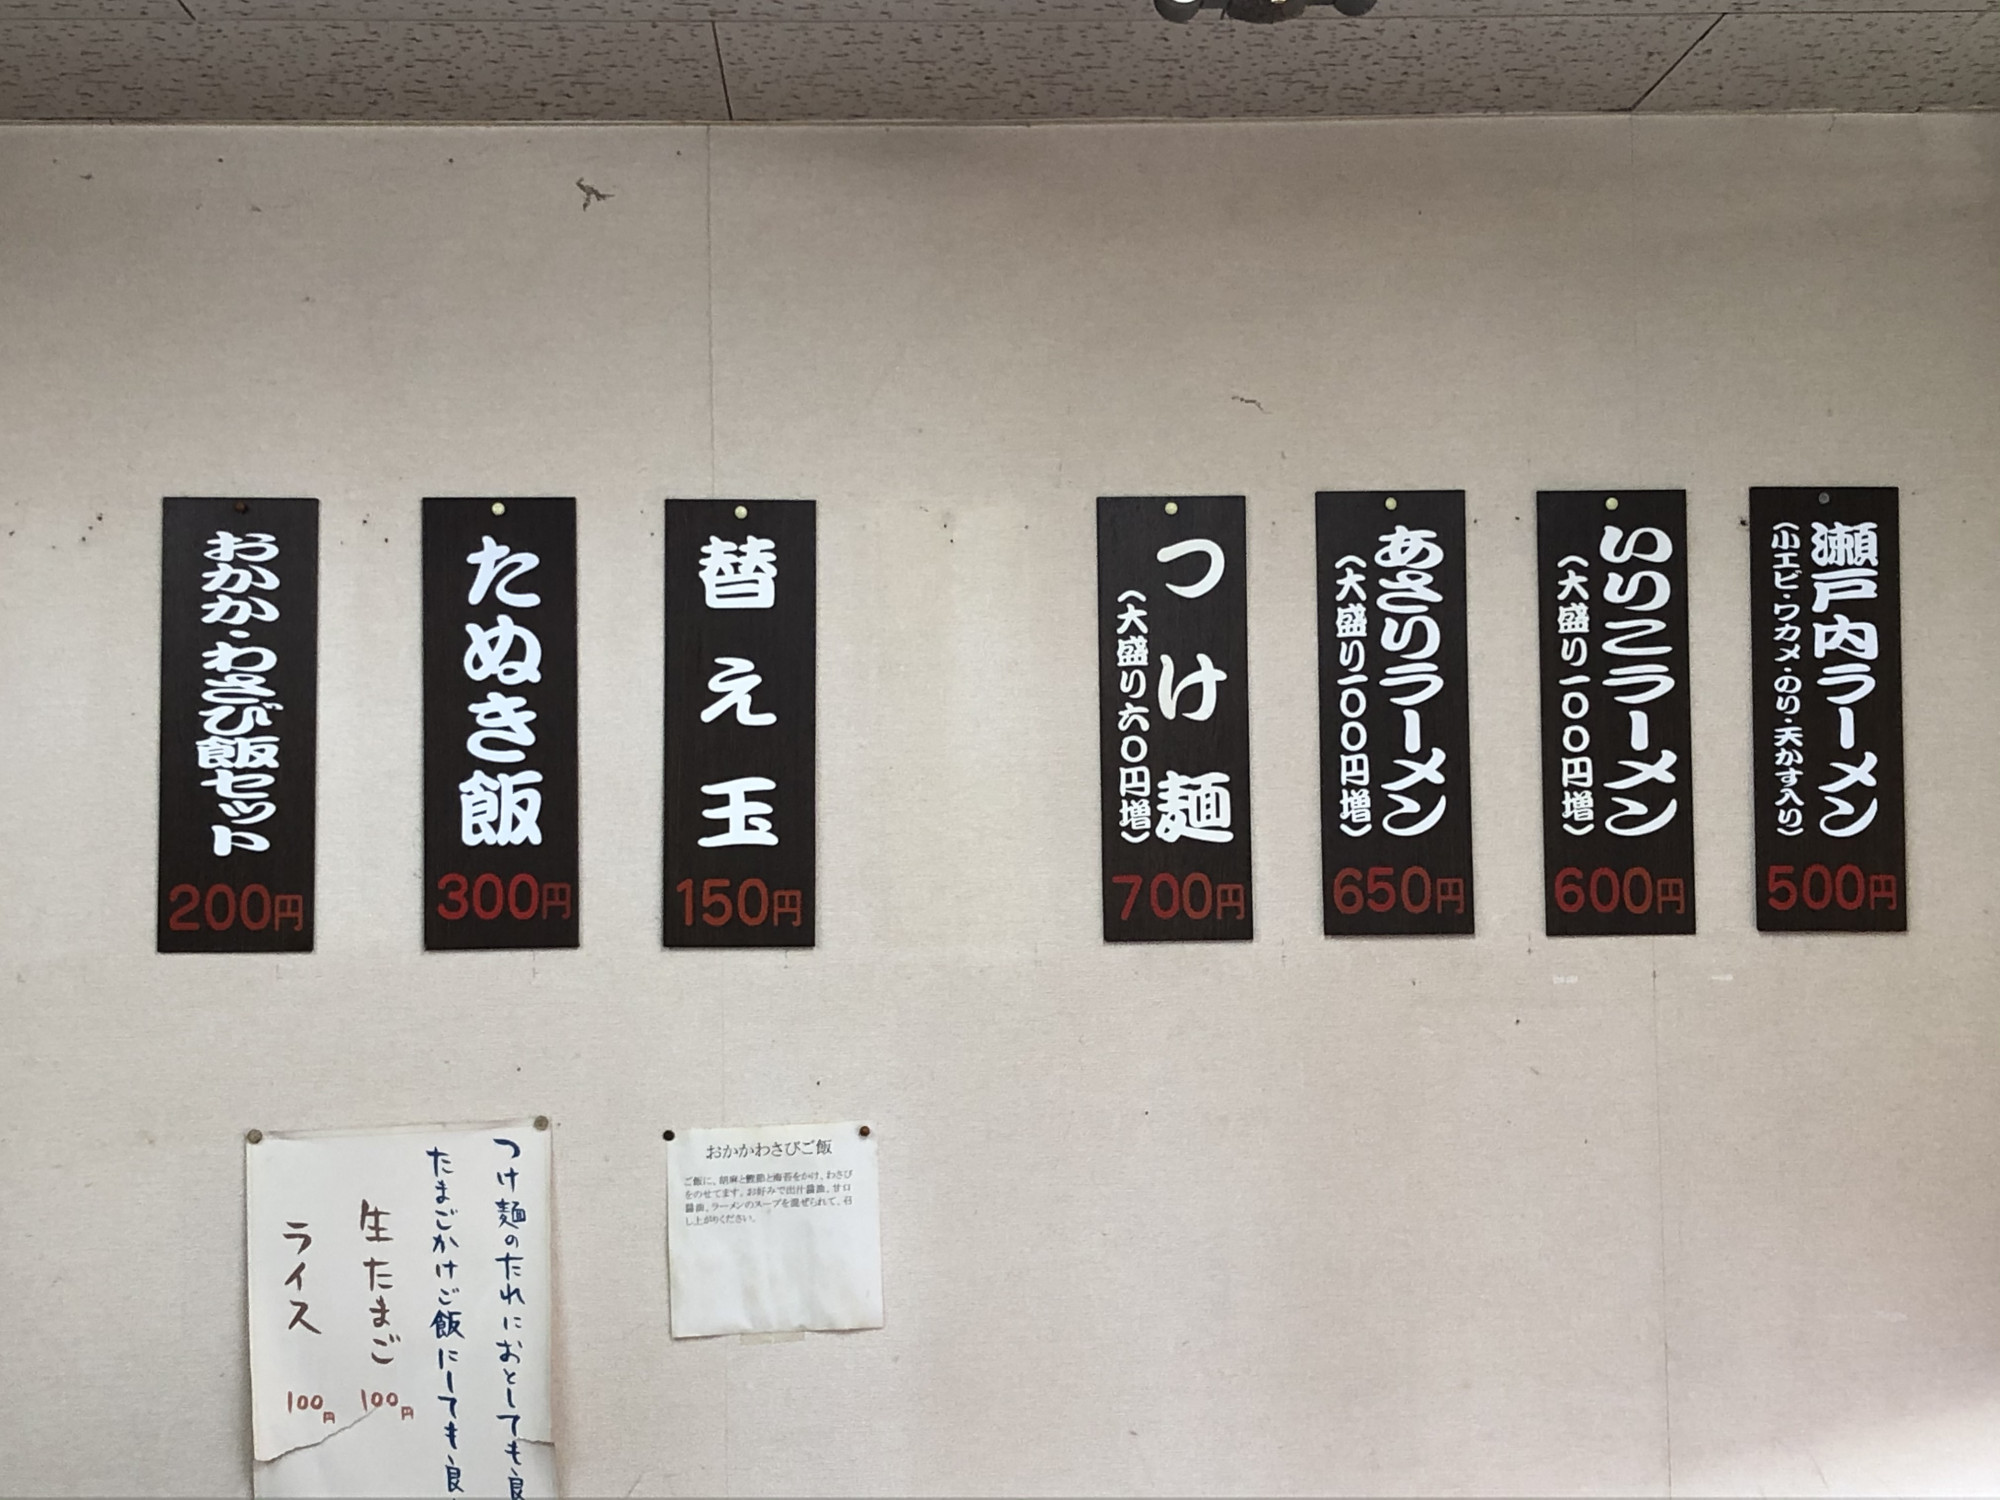 瀬戸内ラーメン
(小エビ・ワカメ・のり・天かす入り)
500円
いりこラーメン
(大盛り一〇〇円増)
600円
あさりラーメン
(大盛り一〇〇円増)
650円
つけ麺
(大盛り六〇円増)
700円
替え玉
150円
たぬき飯
300円
おかか・わさび飯セット
200円
おかかわさびご飯
ご飯に、胡麻と鰹節と海苔をかけ、わさび
をのせてます。お好みで出汁醤油、甘口
醤油、ラーメンのスープを混ぜられて、召
し上がりください。
つけ麺のたれにおとしても良
たまごかけご飯にしても良
生たまご 100円
ライス 100円